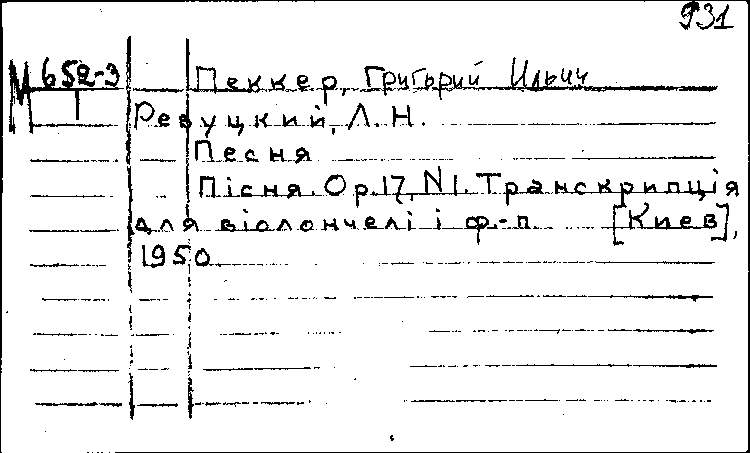 931
М 652-3 Пеккер, Григорий Ильич
1
Ревуцкий, Л. Н.
Песня
Пісня. Op. 17, N 1. Транскрипція
для віолончелі і ф.-п. [Киев],
1950.